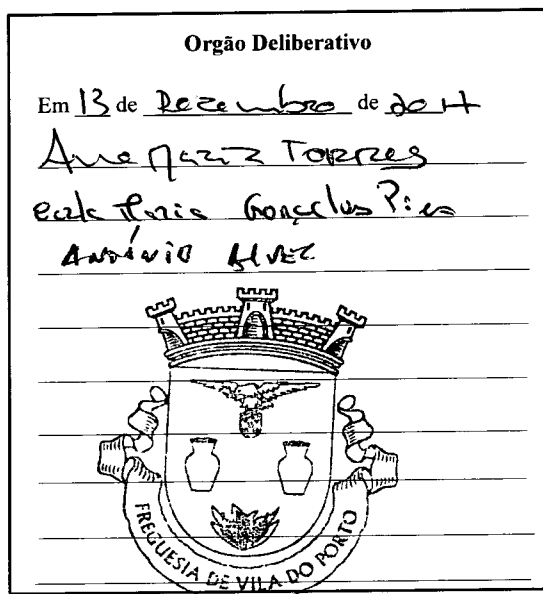 Orgão Deliberativo
Em 13 de Dezembro de
Ana Maria Torres
Carla Maria Gonçalves Pires
António Alvez
FREGUESIA DE VILA DO PORTO